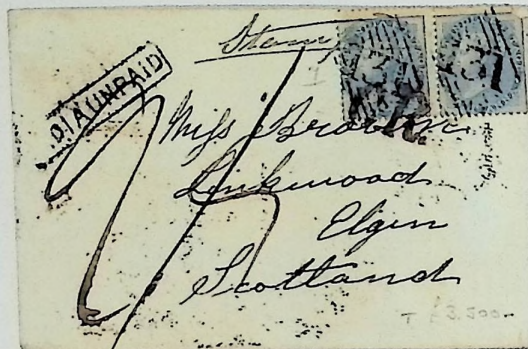 Stamp
INDIA UNPAID
Miss Brown
Linkwood
Elgin
Scotland
T £3,500